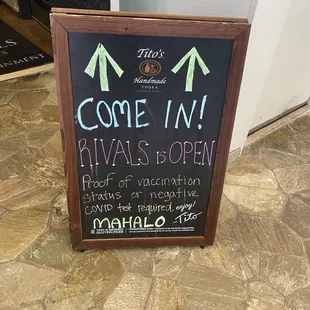 Tito's
Handmade
VODKA
COME IN!
RIVALS is OPEN
Proof of vaccination
status or negative
COVID test required, enjoy!
MAHALO -Tito